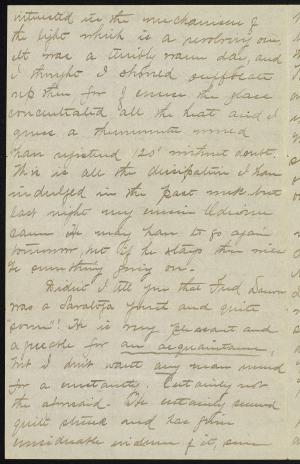 interested in the mechanism of
the light which is a revolving one,
It was a terribly warm day, and
I thought I should suffocate
up there for of course the glass
concentrated all the heat and I
guess a thermometer would
have registered 120° without doubt.
This is all the dissipation I have
indulged in the past week, but
last night my cousin
came. He may have to go again
tomorrow, but if he stays there will
be something going on.
Didn't I tell you that Fred
was a Saratoga youth and quite
"some"! He is very pleasant and
agreeable for an acquaintance,
but I don't want any man around
for a constantly. Certainly not
the aforesaid. He certainly seemed
quite struck and has given
considerable evidence of it, since